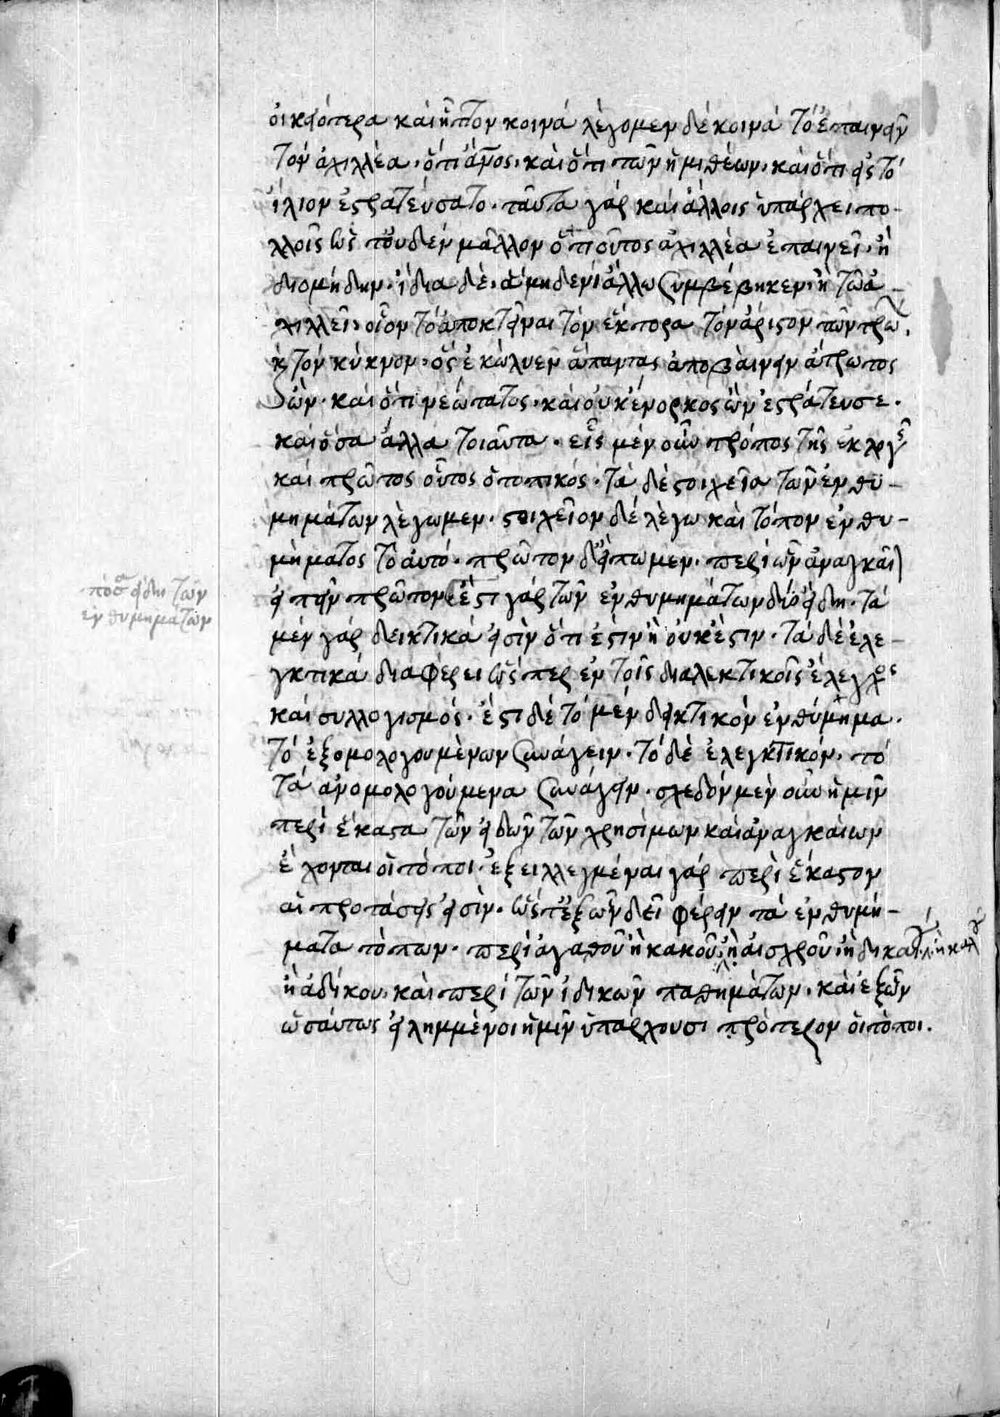 οἰκειότερα καὶ ἧττον κοινά λέγομεν δὲ κοινά τὸ ἐπαινεῖν
τὸν ἀχιλλέα· ὅτι ἄνος· καὶ ὅτι τῶν ἡμιθέων· καὶ ὅτι εἰς τὸ
ἴλιον ἐστρατεύσατο· ταῦτα γὰρ καὶ ἄλλοις ὑπάρχει πο-
λλοῖς ὥστ᾽ οὐδὲν μᾶλλον ὅτι οὗτος ἀχιλλέα ἐπαινεῖ· ἢ
διομήδην· ἴδια δὲ· ἃ μηδενὶ ἄλλω συμβέβηκεν· ἢ τῶ ἀ-
χιλλεῖ· οἷον τὸ ἀποκτεῖναι τὸν ἕκτορα τὸν ἄριστον τῶν τρώων·
κ τὸν κύκνον· ὃς ἐκώλυεν ἅπαντας ἀποβαίνειν ἄτρωτος
ὤν· καὶ ὅτι νεώτατος· καὶ οὐκ ἔνορκος ὢν ἐστράτευσε·
καὶ ὅσα ἄλλα τοιαῦτα· εἷς μὲν οὖν τρόπος τῆς ἐκλογῆς
καὶ πρῶτος οὗτος ὁ τοπικός· τὰ δὲ στοιχεῖα τῶν ἐνθυ-
μημάτων λέγωμεν· στοιχεῖον δὲ λέγω καὶ τόπον ἐνθυ-
μήματος τὸ αὐτό· πρῶτον δὲ εἴπωμεν· περὶ ὧν ἀναγκαῖ
εἰπεῖν πρῶτον· ἔστι γὰρ τῶν ἐνθυμημάτων δύο εἴδη· τὰ
μὲν γὰρ δεικτικά εἰσὶν ὅτι ἔστιν ἢ οὐκ ἔστιν· τὰ δὲ ἐλε-
γκτικά διαφέρει ὥσπερ ἐν τοῖς διαλεκτικοῖς ἔλεγχος
καὶ συλλογισμός· ἔστι δὲ τὸ μὲν δεικτικὸν ἐνθύμημα·
τὸ ἐξ ὁμολογουμένων συνάγειν· τὸ δὲ ἐλεγκτικόν· τὸ
τὰ ἀνομολογούμενα συνάγειν· σχεδὸν μὲν οὖν ἡμῖν
περὶ ἕκαστα τῶν εἰδῶν τῶν χρησίμων καὶ ἀναγκαίων
ἔχονται οἱ τόποι· ἐξειλλεγμέναι γὰρ περὶ ἕκαστον
αἱ προτάσεις εἰσίν· ὥστ᾽ ἐξ ὧν δεῖ φέρειν τὰ ἐνθυμή-
ματα τόπων· περὶ ἀγαθοῦ ἢ κακοῦ· ἢ αἰσχροῦ· ἢ δικαίου· ἢ καλοῦ
ἢ ἀδίκου· καὶ περὶ τῶν ἰδικῶν παθημάτων· καὶ ἐξ ὧν
ὡσαύτως εἰλημμένοι ἡμῖν ὑπάρχουσι πρότερον οἱ τόποι·
πόσα εἴδη τῶν
ἐνθυμημάτων